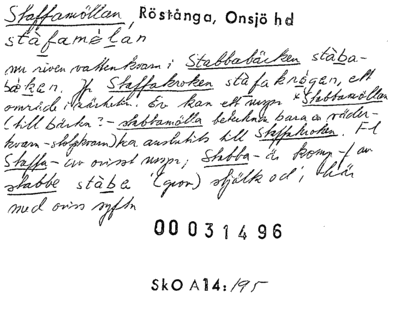 Staffamöllan, Röstånga, Onsjö hd
stàfamẹlan
nu riven vattenkvarn i Stabbabäcken stàba-
bäken. Jfr Staffakroken stàfakrogan, ett
område i närheten. Ev kan ett urspr *Stabbamöllan
(till bäcken? - stabbamölla betecknar bara en väder-
kvarn - stolpkvarn) ha anslutits till Staffakroken. F l
Staffa- av ovisst urspr; Stabba- är komp-f av
stabbe stàba '(grov) stjälk od', här
med oviss syftn
00 031496
SkO A14:195